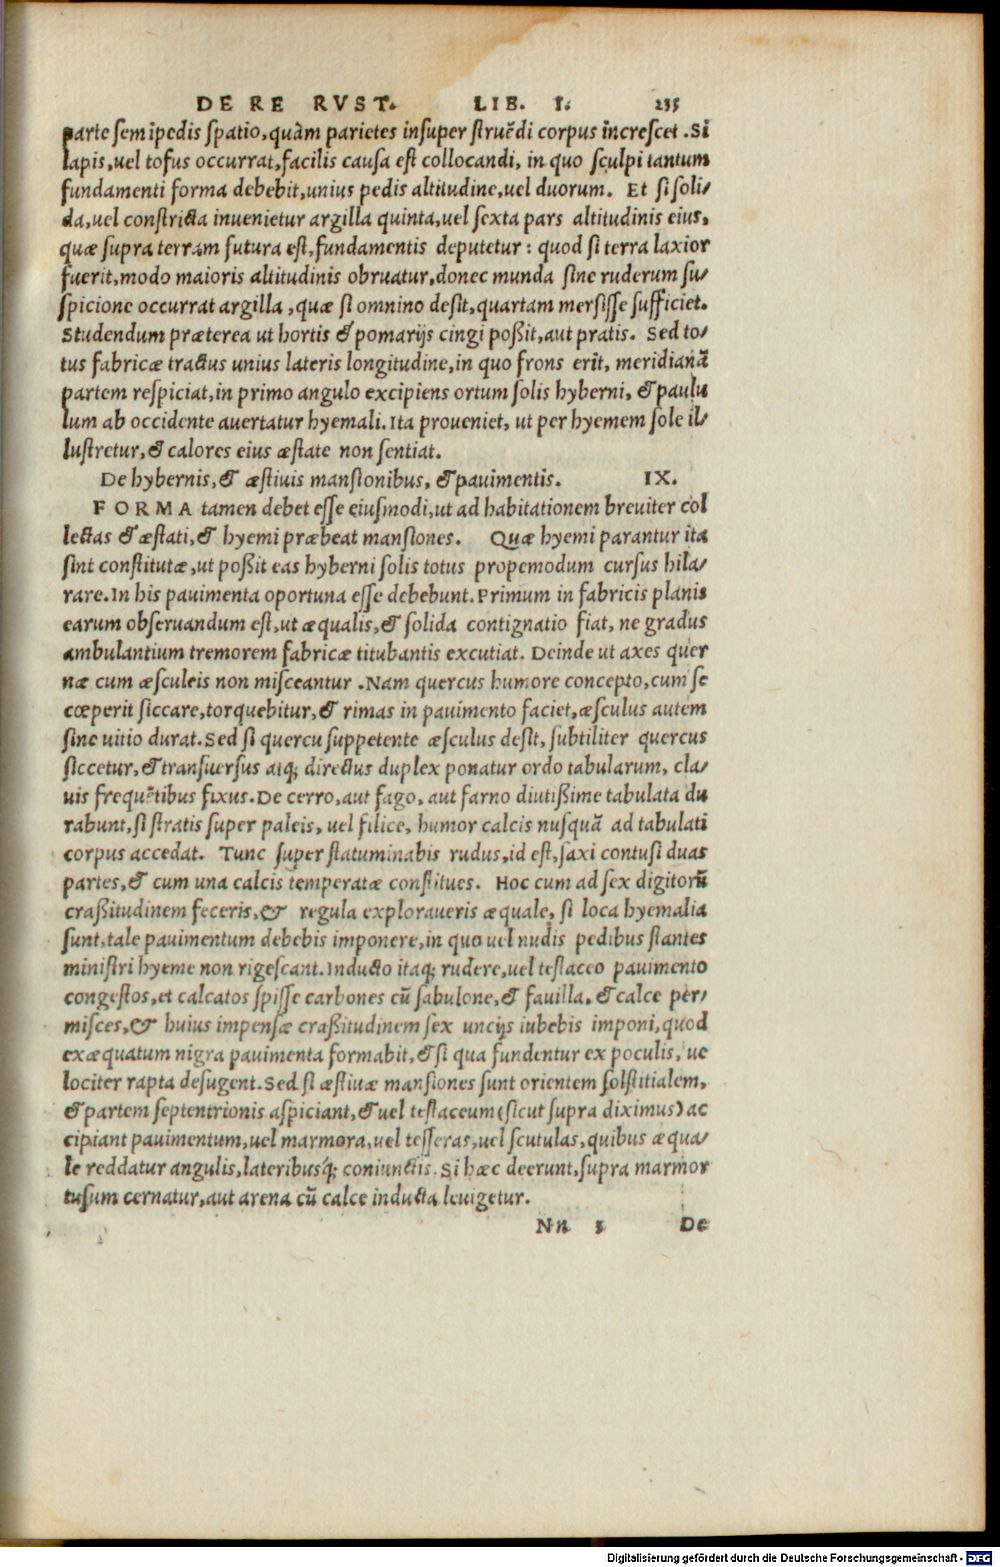 DE RE RVST. LIB. I. 235
parte semipedis spatio, quàm parietes insuper struẽdi corpus increscet. Si
lapis, uel tofus occurrat, facilis causa est collocandi, in quo sculpi tantum
fundamenti forma debebit, unius pedis altitudine, uel duorum. Et si soli/
da, uel constricta inuenietur argilla quinta, uel sexta pars altitudinis eius,
quæ supra terram futura est, fundamentis deputetur: quod si terra laxior
fuerit, modo maioris altitudinis obruatur, donec munda sine ruderum su/
spicione occurrat argilla, quæ si omnino desit, quartam mersisse sufficiet.
Studendum præterea ut hortis & pomarijs cingi poßit, aut pratis. Sed to/
tus fabricæ tractus unius lateris longitudine, in quo frons erit, meridianã
partem respiciat, in primo angulo excipiens ortum solis hyberni, & paulu
lum ab occidente auertatur hyemali. Ita proueniet, ut per hyemem sole il/
lustretur, & calores eius æstate non sentiat.
De hybernis, & æstiuis mansionibus, & pauimentis. IX.
FORMA tamen debet esse eiusmodi, ut ad habitationem breuiter col
lectas & æstati, & hyemi præbeat mansiones. Quæ hyemi parantur ita
sint constitutæ, ut poßit eas hyberni solis totus propemodum cursus hila/
rare. In his pauimenta oportuna esse debebunt. Primum in fabricis planis
earum obseruandum est, ut æqualis, & solida contignatio fiat, ne gradus
ambulantium tremorem fabricæ titubantis excutiat. Deinde ut axes quer
næ cum æsculeis non misceantur. Nam quercus humore concepto, cum se
cœperit siccare, torquebitur, & rimas in pauimento faciet, æsculus autem
sine uitio durat. Sed si quercu suppetente æsculus desit, subtiliter quercus
siccetur, & transuersus atq; directus duplex ponatur ordo tabularum, cla/
uis frequẽtibus fixus. De cerro, aut fago, aut farno diutißime tabulata du
rabunt, si stratis super paleis, uel filice, humor calcis nusquã ad tabulati
corpus accedat. Tunc super statuminabis rudus, id est, saxi contusi duas
partes, & cum una calcis temperatæ constitues. Hoc cum ad sex digitorũ
craßitudinem feceris, & regula exploraueris æquale, si loca hyemalia
sunt, tale pauimentum debebis imponere, in quo uel nudis pedibus stantes
ministri hyeme non rigescant. Inducto itaq; rudere, uel testaceo pauimento
congestos, et calcatos spisse carbones cũ sabulone, & fauilla, & calce per/
misces, & huius impensæ craßitudinem sex uncijs iubebis imponi, quod
exæquatum nigra pauimenta formabit, & si qua fundentur ex poculis, ue
lociter rapta desugent. Sed si æstiuæ mansiones sunt orientem solstitialem,
& partem septentrionis aspiciant, & uel testaceum (sicut supra diximus) ac
cipiant pauimentum, uel marmora, uel tesseras, uel scutulas, quibus æqua/
le reddatur angulis, lateribusq; coniunctis. Si hæc deerunt, supra marmor
tusum cernatur, aut arena cũ calce inducta leuigetur.
Nn 3 De
Digitalisierung gefördert durch die Deutsche Forschungsgemeinschaft - DFG